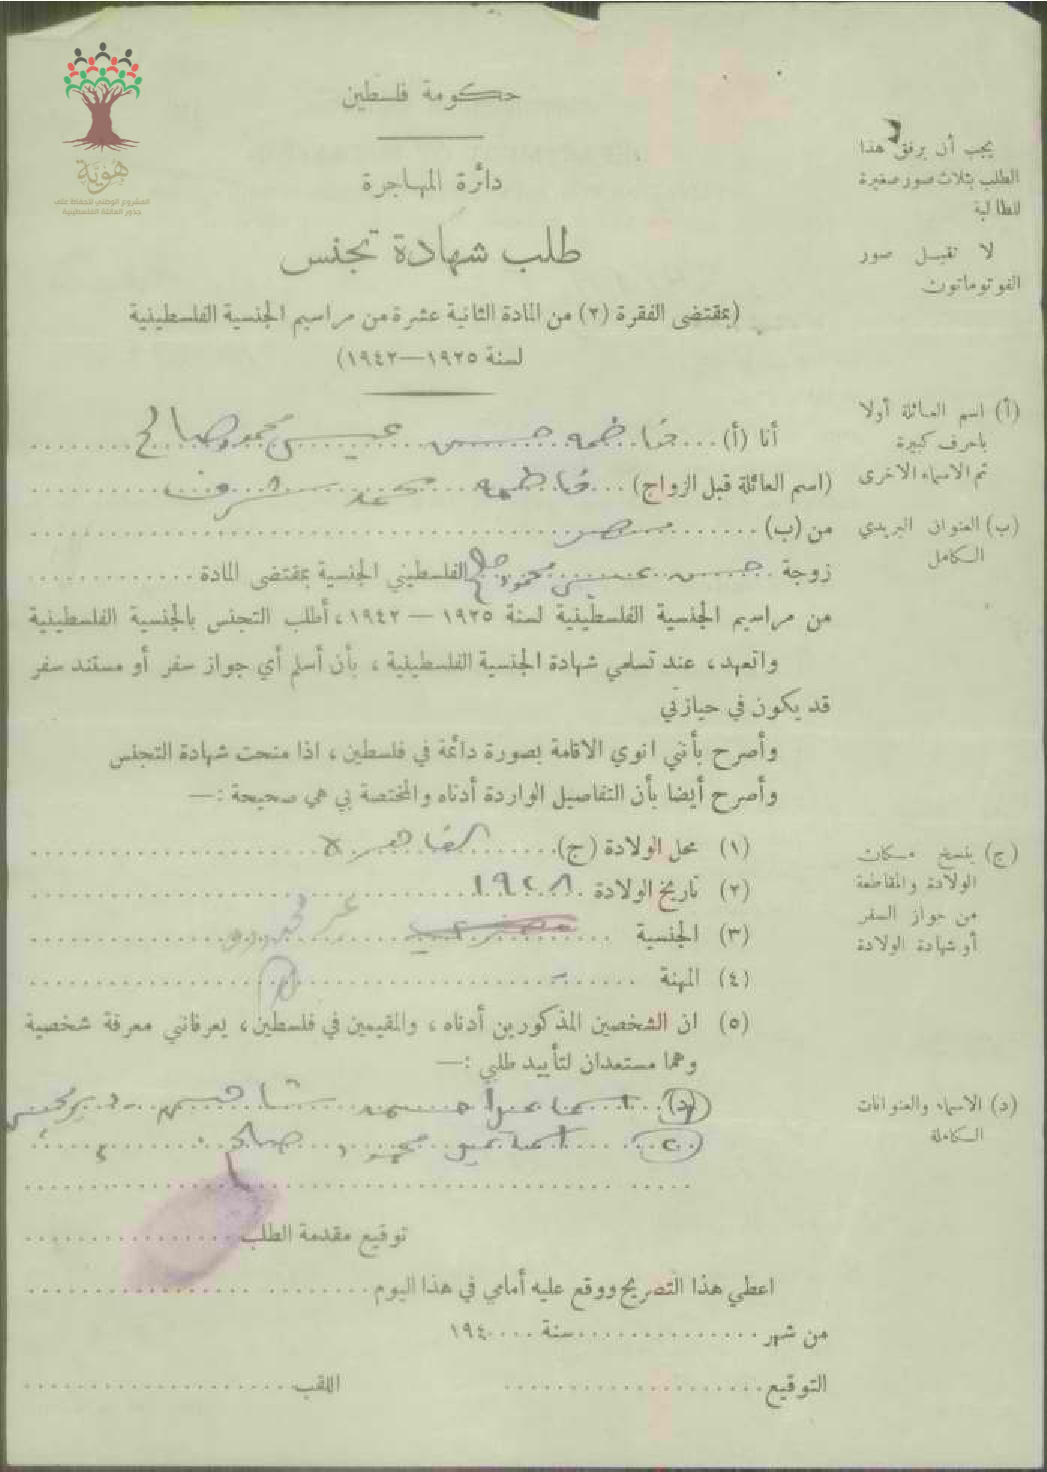 هوية
المشروع الوطني للحفاظ على
جذور العائلة الفلسطينية
حكومة فلسطين
دائرة المهاجرة
طلب شهادة تجنس
(بمقتضى الفقرة (٢) من المادة الثانية عشرة من مراسيم الجنسية الفلسطينية
لسنة ١٩٢٥—١٩٤٢)
يجب أن يرفق هذا
الطلب بثلاث صور صغيرة
للطالبة
لا تقبل صور
الفوتوماتون
أنا (أ) ... فاطمه حسن عيسى محمود صالح
(أ) اسم العائلة أولا
باحرف كبيرة
ثم الاسماء الاخرى
(اسم العائلة قبل الزواج) ... فاطمه محمد شرف
من (ب) ... مصر
(ب) العنوان البريدي
الكامل
زوجة حسن عيسى محمود صالح الفلسطيني الجنسية بمقتضى المادة
من مراسيم الجنسية الفلسطينية لسنة ١٩٢٥ — ١٩٤٢، أطلب التجنس بالجنسية الفلسطينية
واتعهد، عند تسلمي شهادة الجنسية الفلسطينية، بأن أسلم أي جواز سفر أو مستند سفر
قد يكون في حيازتي
وأصرح بأنني انوي الاقامة بصورة دائمة في فلسطين، اذا منحت شهادة التجنس
وأصرح أيضا بأن التفاصيل الواردة أدناه والمختصة بي هي صحيحة :—
(١) محل الولادة (ج) القاهرة
(٢) تاريخ الولادة ١٩٢٨
(٣) الجنسية
(٤) المهنة
(ج) ينسخ مكان
الولادة والمقاطعة
من جواز السفر
أو شهادة الولادة
(٥) ان الشخصين المذكورين أدناه، والمقيمين في فلسطين، يعرفانني معرفة شخصية
وهما مستعدان لتأييد طلبي :—
(د)
(د) الاسماء والعنوانات
الكاملة
محمد صالح
توقيع مقدمة الطلب
اعطي هذا التصريح ووقع عليه أمامي في هذا اليوم
من شهر سنة ١٩٤
التوقيع اللقب